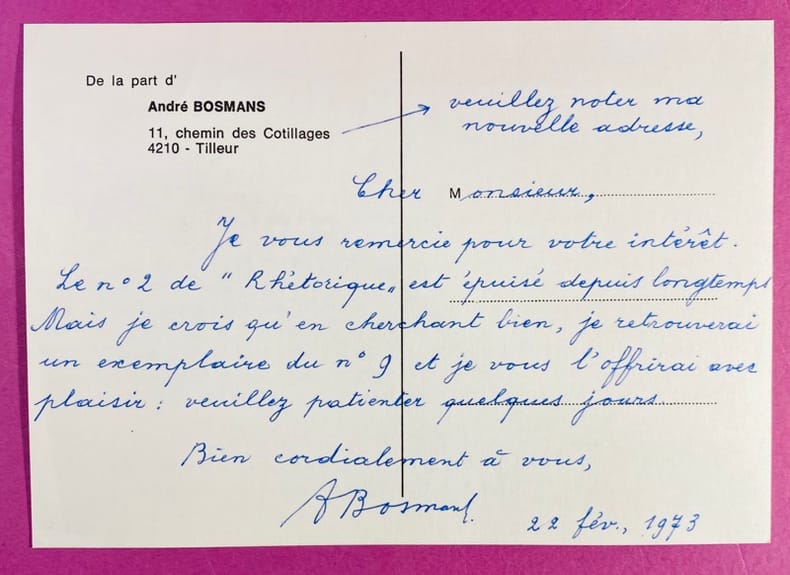 De la part d'
André BOSMANS
11, chemin des Cotillages
4210 - Tilleur
veuillez noter ma
nouvelle adresse,
Cher Monsieur,
Je vous remercie pour votre intérêt.
Le n° 2 de "Rhétorique" est épuisé depuis longtemps
Mais je crois qu'en cherchant bien, je retrouverai
un exemplaire du n° 9 et je vous l'offrirai avec
plaisir : veuillez patienter quelques jours.
Bien cordialement à vous,
ABosmans
22 fév., 1973